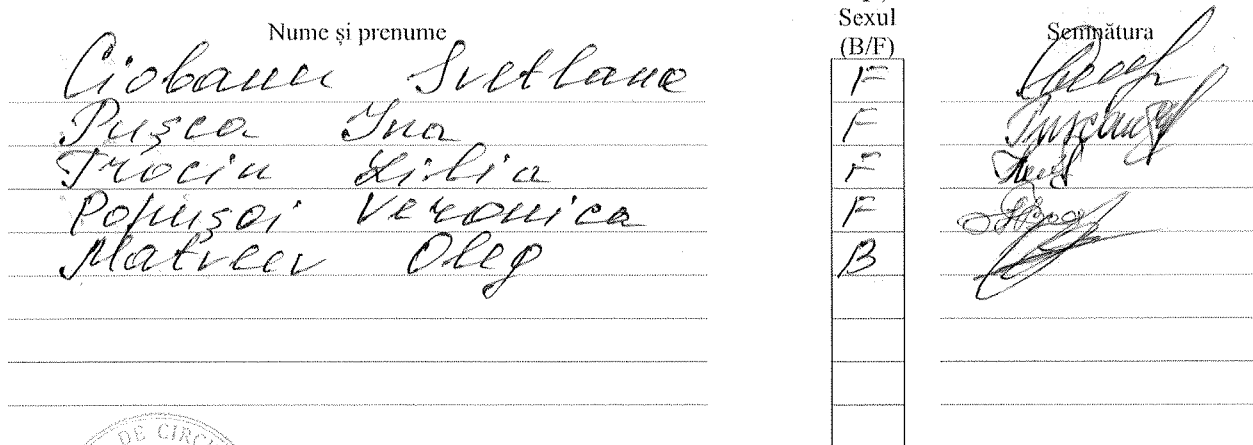 Nume și prenume Sexul (B/F) Semnătura
Ciobanu Svetlana F
Pușca Ina F
Trociu Lilia F
Popușoi Veronica F
Matveev Oleg B
DE CIRCU